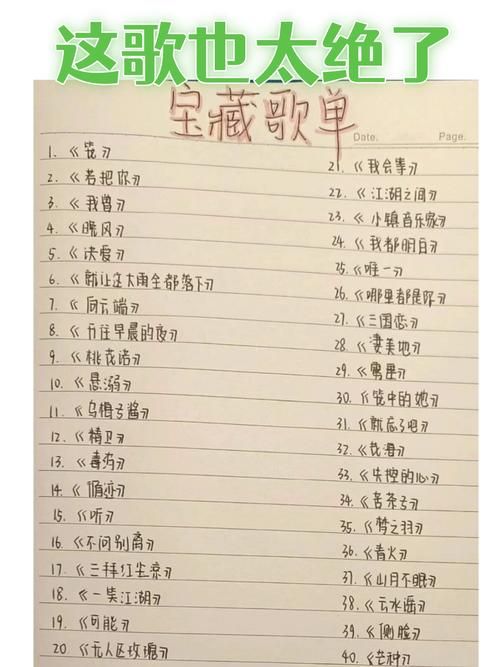 这歌也太绝了
宝藏歌单
Date.
Page.
1. 《笼》
2. 《若把你》
3. 《我曾》
4. 《晚风》
5. 《决爱》
6. 《就让这大雨全都落下》
7. 《向云端》
8. 《开往早晨的夜》
9. 《桃花诺》
10. 《悬溺》
11. 《乌梅子酱》
12. 《精卫》
13. 《毒》
14. 《迹》
15. 《听》
16. 《不问别离》
17. 《三拜红尘凉》
18. 《一笑江湖》
19. 《可能》
20 《无人区玫瑰》
21. 《我会等》
22. 《江湖之间》
23. 《小镇音乐家》
24. 《我都明白》
25. 《唯一》
26. 《哪里都是你》
27. 《三国恋》
28. 《凄美地》
29. 《》
30. 《笼中的她》
31. 《就忘了吧》
32. 《花海》
33. 《失控的心》
34. 《苦茶子》
35. 《梦之羽》
36. 《青火》
37. 《山月不眠》
38. 《云水谣》
39. 《侧脸》
40. 《芒种》